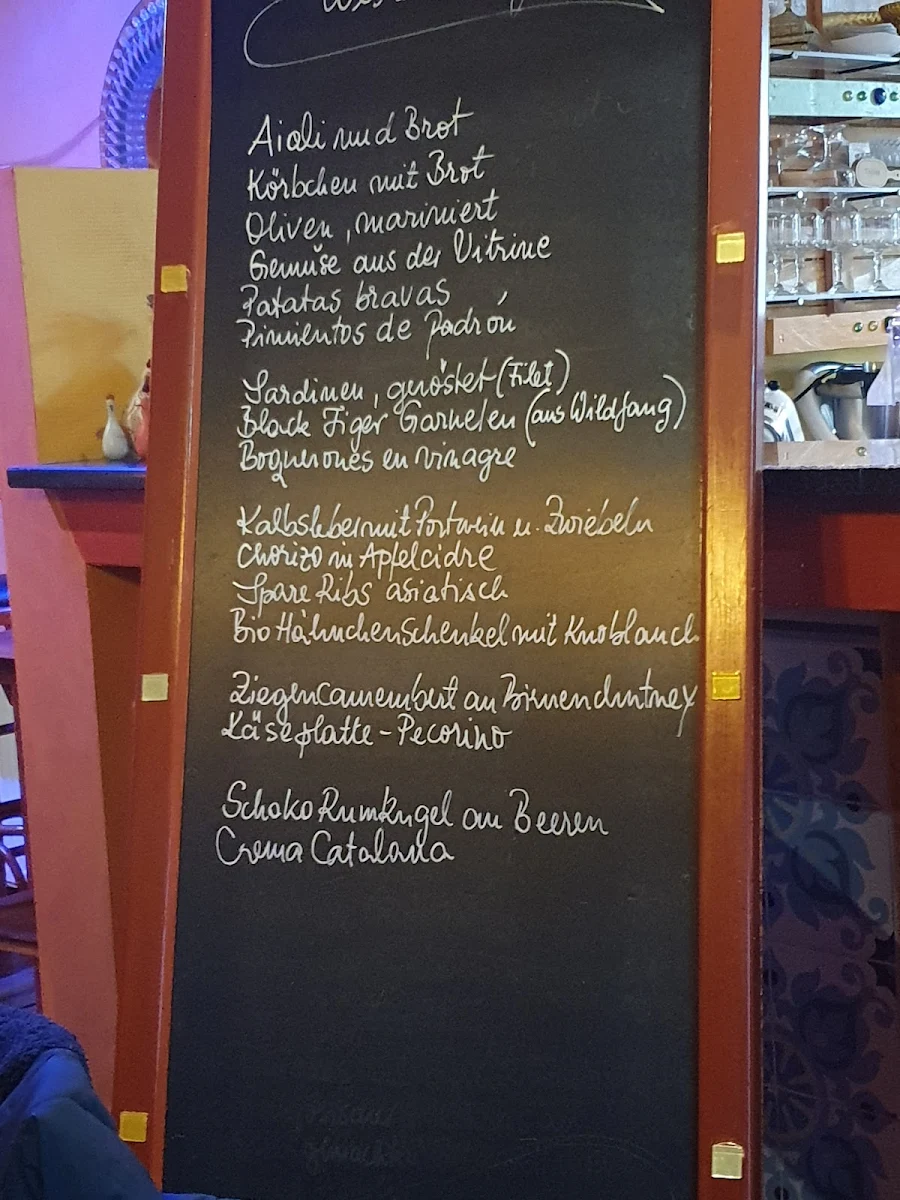 Aioli und Brot
Körbchen mit Brot
Oliven, mariniert
Gemüse aus der Vitrine
Patatas bravas
Pimientos de Padrón
Sardinen, geröstet (Filet)
Black Tiger Garnelen (aus Wildfang)
Boquerones en vinagre
Kalbsleber mit Portwein u. Zwiebeln
Chorizo in Apfelcidre
Spare Ribs asiatisch
Bio Hähnchenschenkel mit Knoblauch
Ziegencamembert an Birnenchutney
Käseplatte - Pecorino
Schoko Rumkugel an Beeren
Crema Catalana